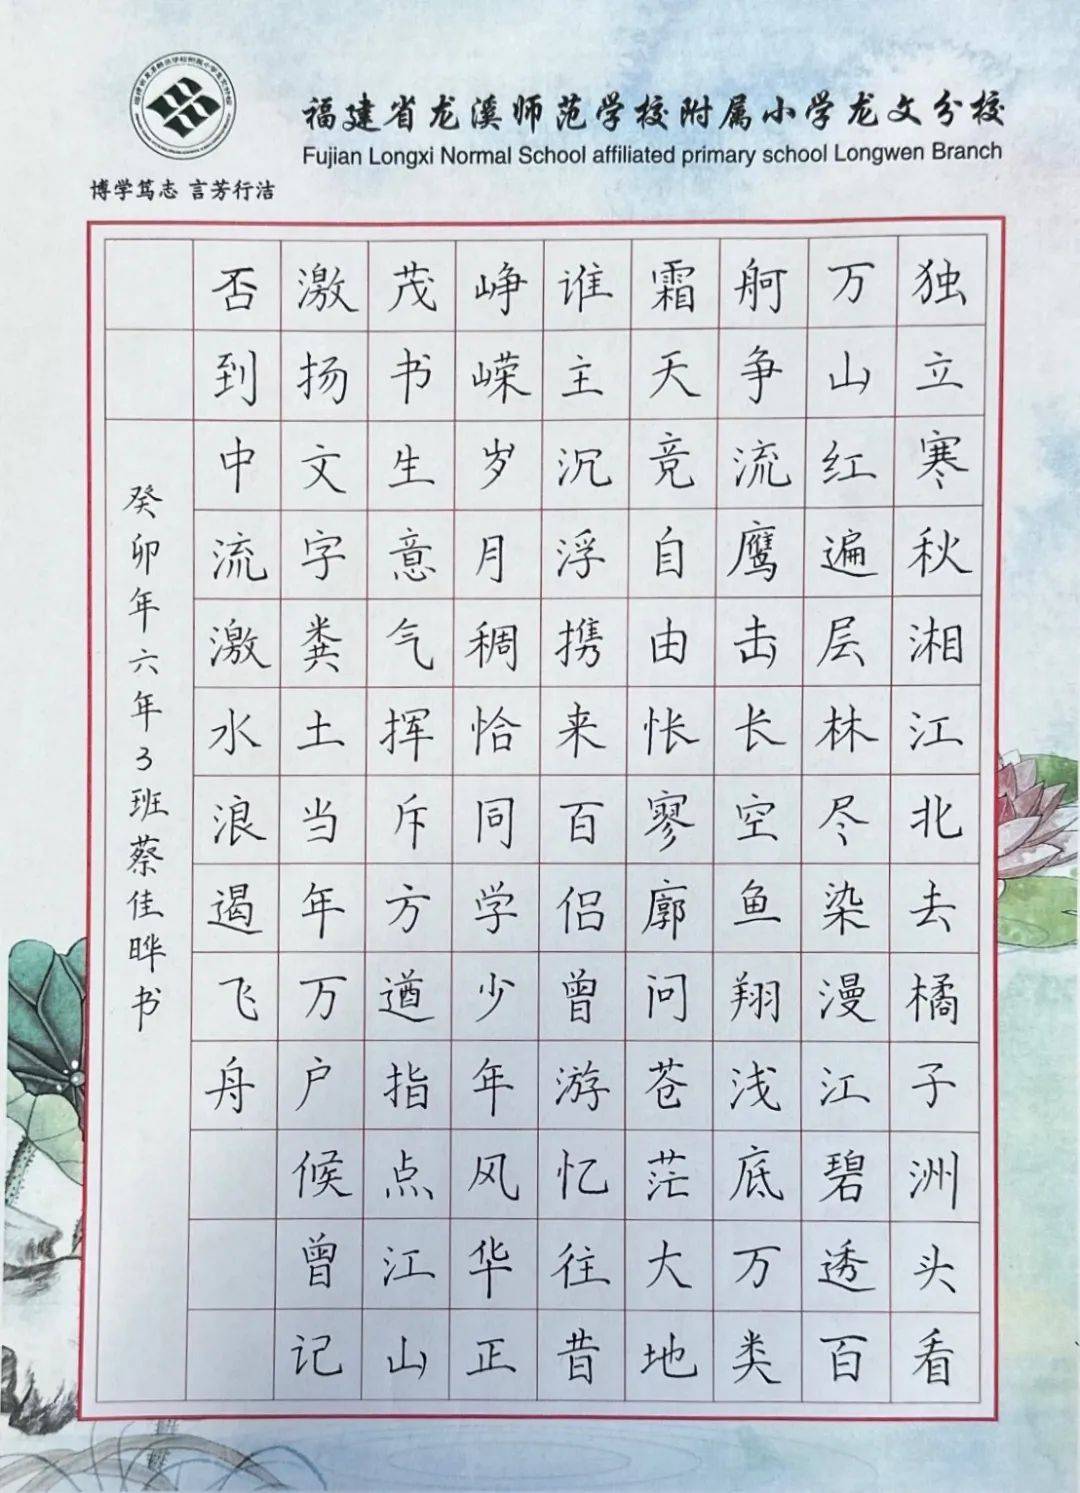 福建省龙溪师范学校附属小学龙文分校
Fujian Longxi Normal School affiliated primary school Longwen Branch
博学笃志 言芳行洁
独立寒秋湘江北去橘子洲头看
万山红遍层林尽染漫江碧透百
舸争流鹰击长空鱼翔浅底万类
霜天竞自由怅寥廓问苍茫大地
谁主沉浮携来百侣曾游忆往昔
峥嵘岁月稠恰同学少年风华正
茂书生意气挥斥方遒指点江山
激扬文字粪土当年万户候曾记
否到中流激水浪遏飞舟
癸卯年六年3班蔡佳晔书